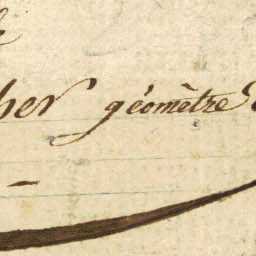 her géomètre